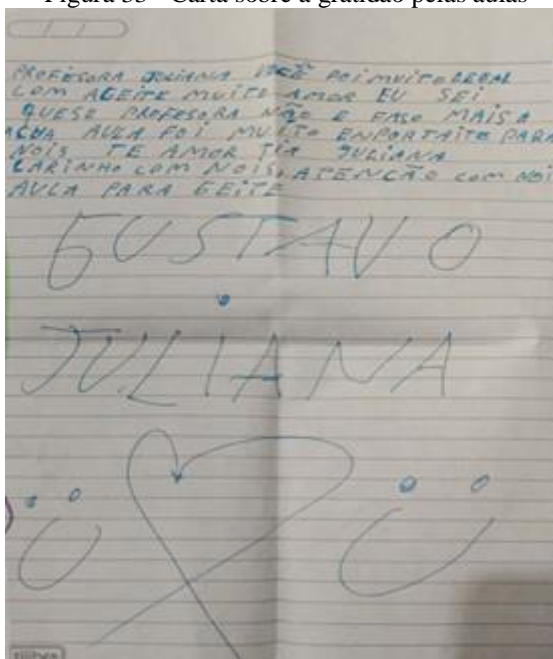 Figura 55 - Carta sobre a gratidão pelas aulas
PROFESORA JULIANA VOCÊ FOI MUITO LEGAL
COM AGEITE MUITO AMOR EU SEI
QUESE PROFESORA NÃO E FASO MAIS A
ACUA AULA FOI MUITO ENPORTAITE PARA
NOIS TE AMOR TIA JULIANA
CARINHO COM NOIS, ATENCÃO COM NOI
AULA PARA GEITE
GUSTAVO
JULIANA